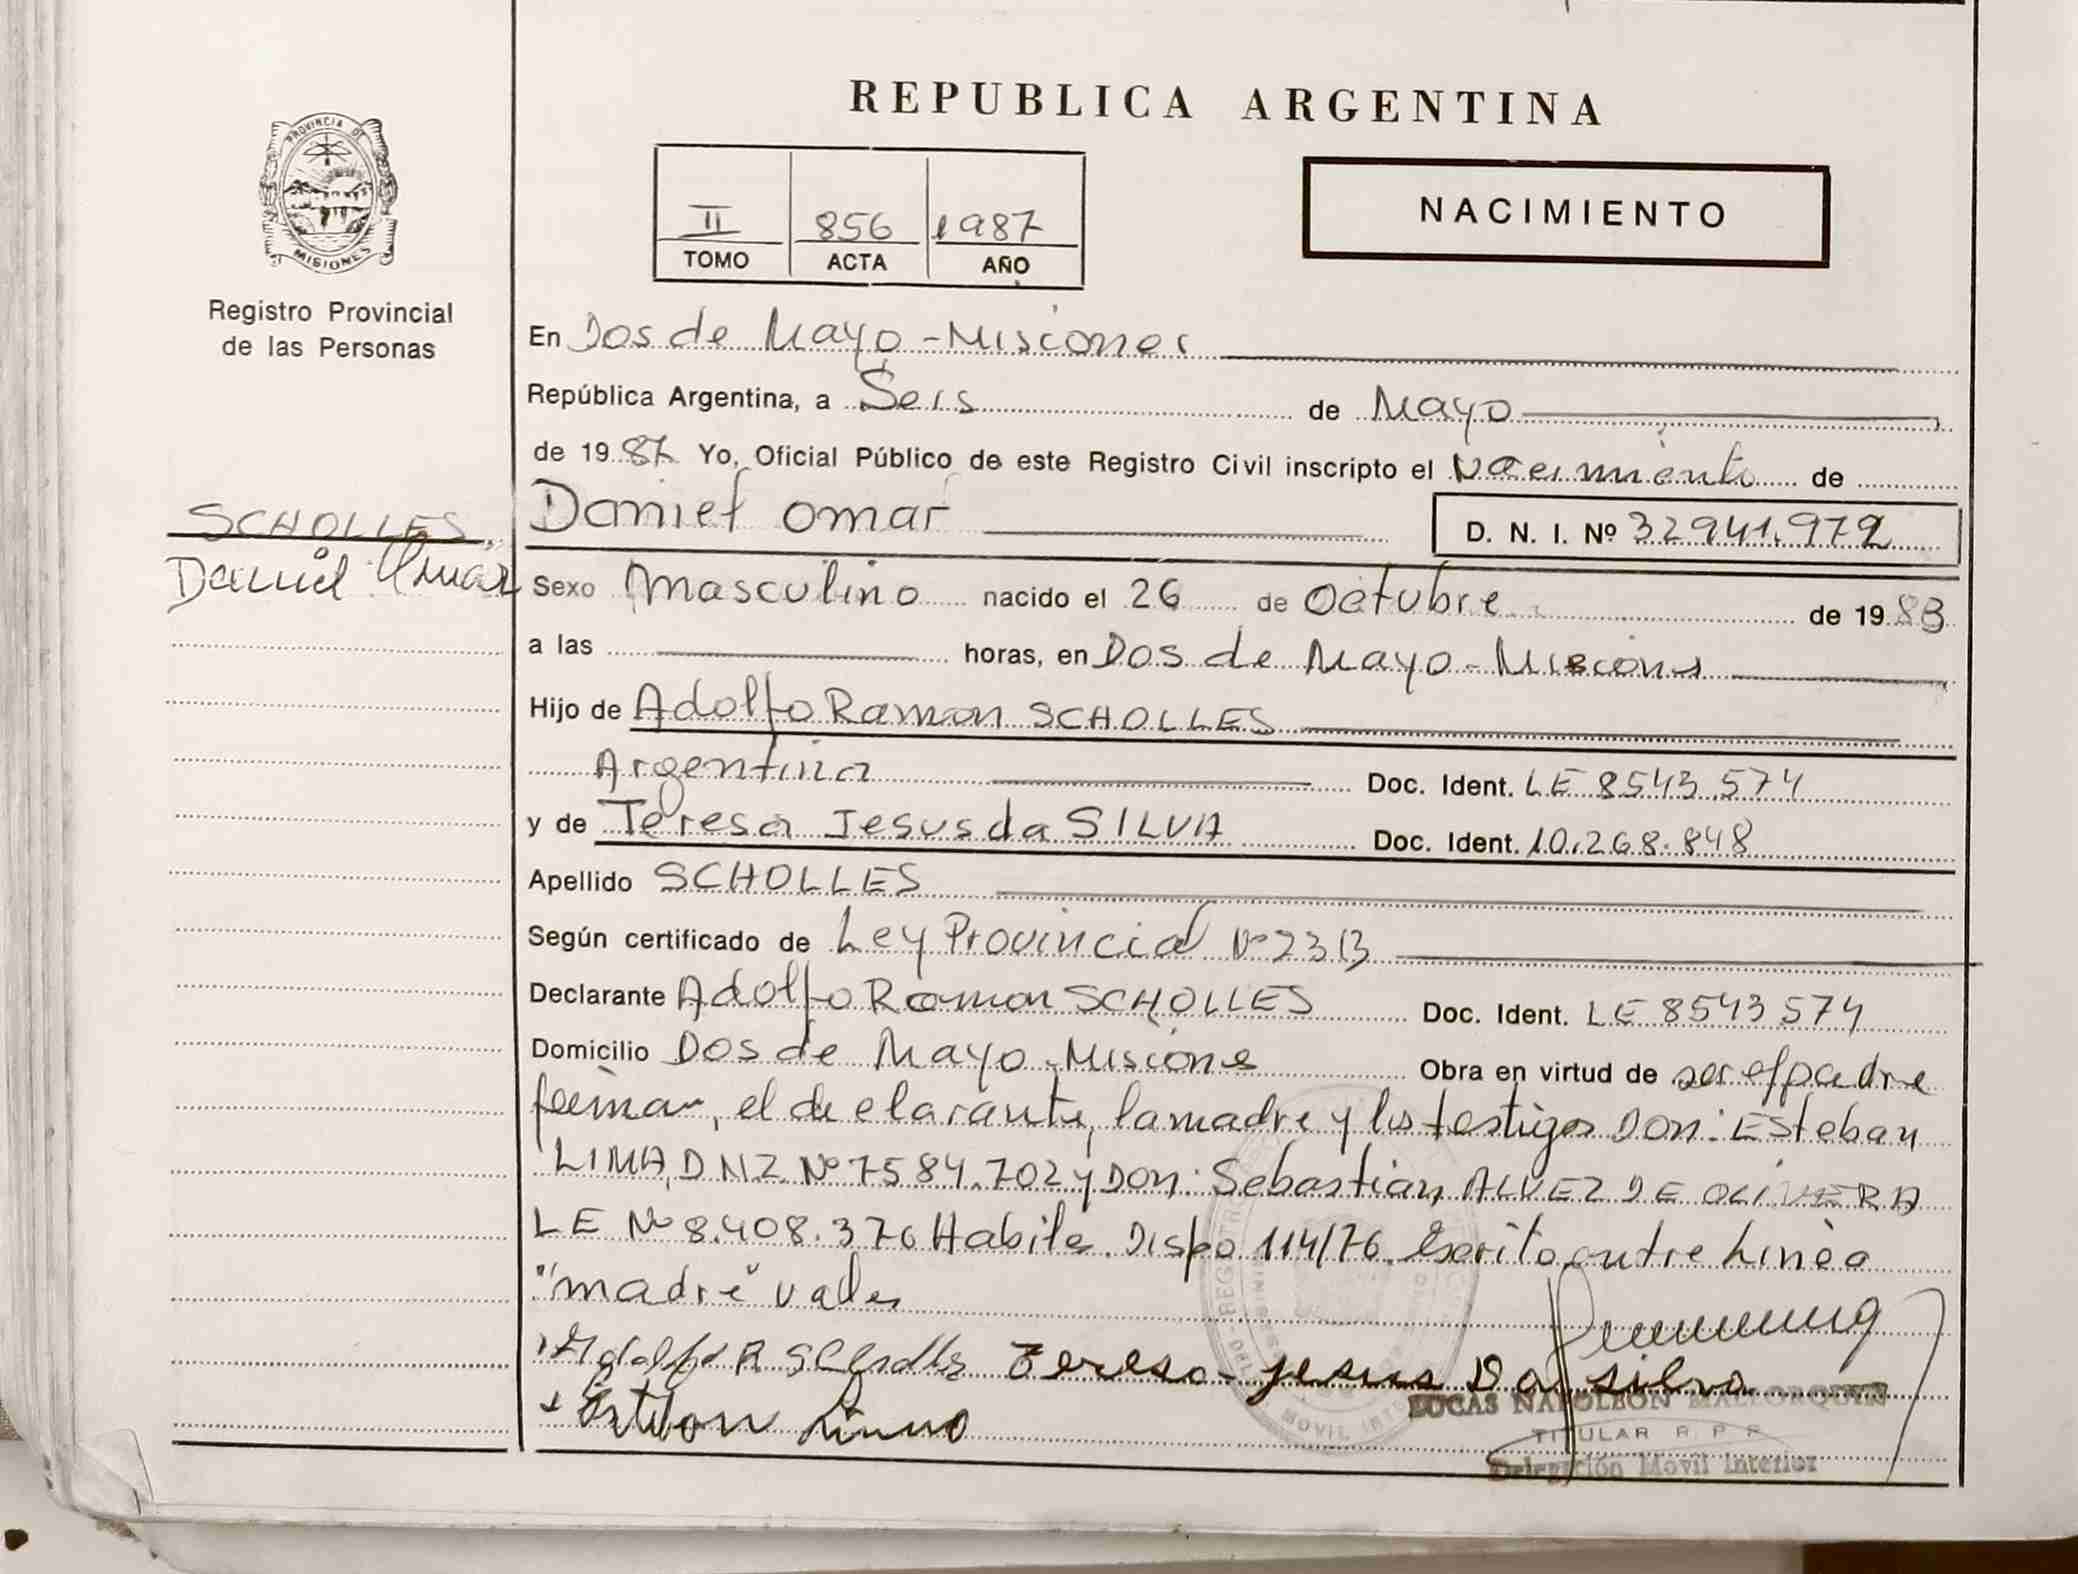 REPUBLICA ARGENTINA
PROVINCIA DE
MISIONES
Registro Provincial
de las Personas
II 856 1987
TOMO ACTA AÑO
NACIMIENTO
En Dos de Mayo - Misiones
República Argentina, a Seis de Mayo
de 1987 Yo, Oficial Público de este Registro Civil inscripto el Nacimiento de
SCHOLLES,
Daniel Omar
Daniel Omar D. N. I. Nº 32941.972
Sexo Masculino nacido el 26 de Octubre de 1983
a las horas, en Dos de Mayo - Misiones
Hijo de Adolfo Ramon SCHOLLES
Argentina Doc. Ident. LE 8543.574
y de Teresa Jesus da SILVA Doc. Ident. 10.268.848
Apellido SCHOLLES
Según certificado de Ley Provincial Nº 2313
Declarante Adolfo Ramon SCHOLLES Doc. Ident. LE 8543574
Domicilio Dos de Mayo - Misiones Obra en virtud de ser el padre
firman, el declarante, la madre y los testigos Don: Esteban
LIMA, DNI Nº 7584.702 y Don: Sebastian ALVEZ DE OLIVERA
LE Nº 8.408.376 Habiles. Dispo 114/76. Escrito entre Linea
"madre" vale
Adolfo R Scholles Teresa Jesus Da silva
Esteban Lima
LUCAS NAPOLEON MALLORQUIN
TITULAR R. P. P.
Delegación Movil Interior